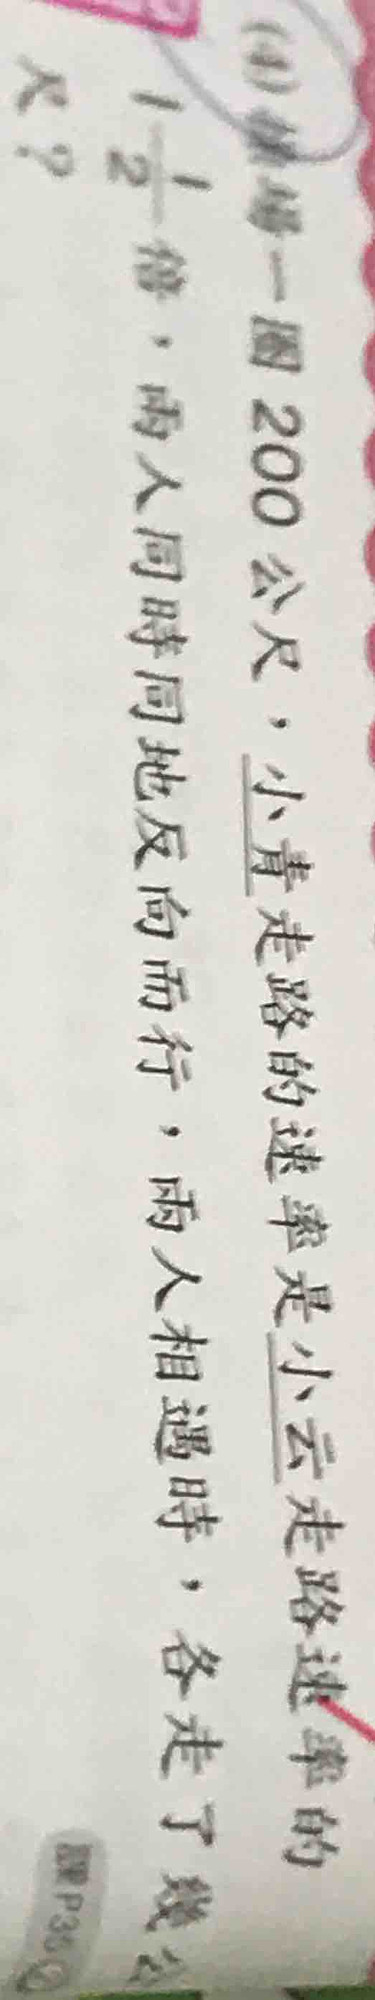 (4) 操場一圈 200 公尺，小青走路的速率是小云走路速率的
1 1/2 倍，兩人同時同地反向而行，兩人相遇時，各走了幾公
尺？
P36 ②